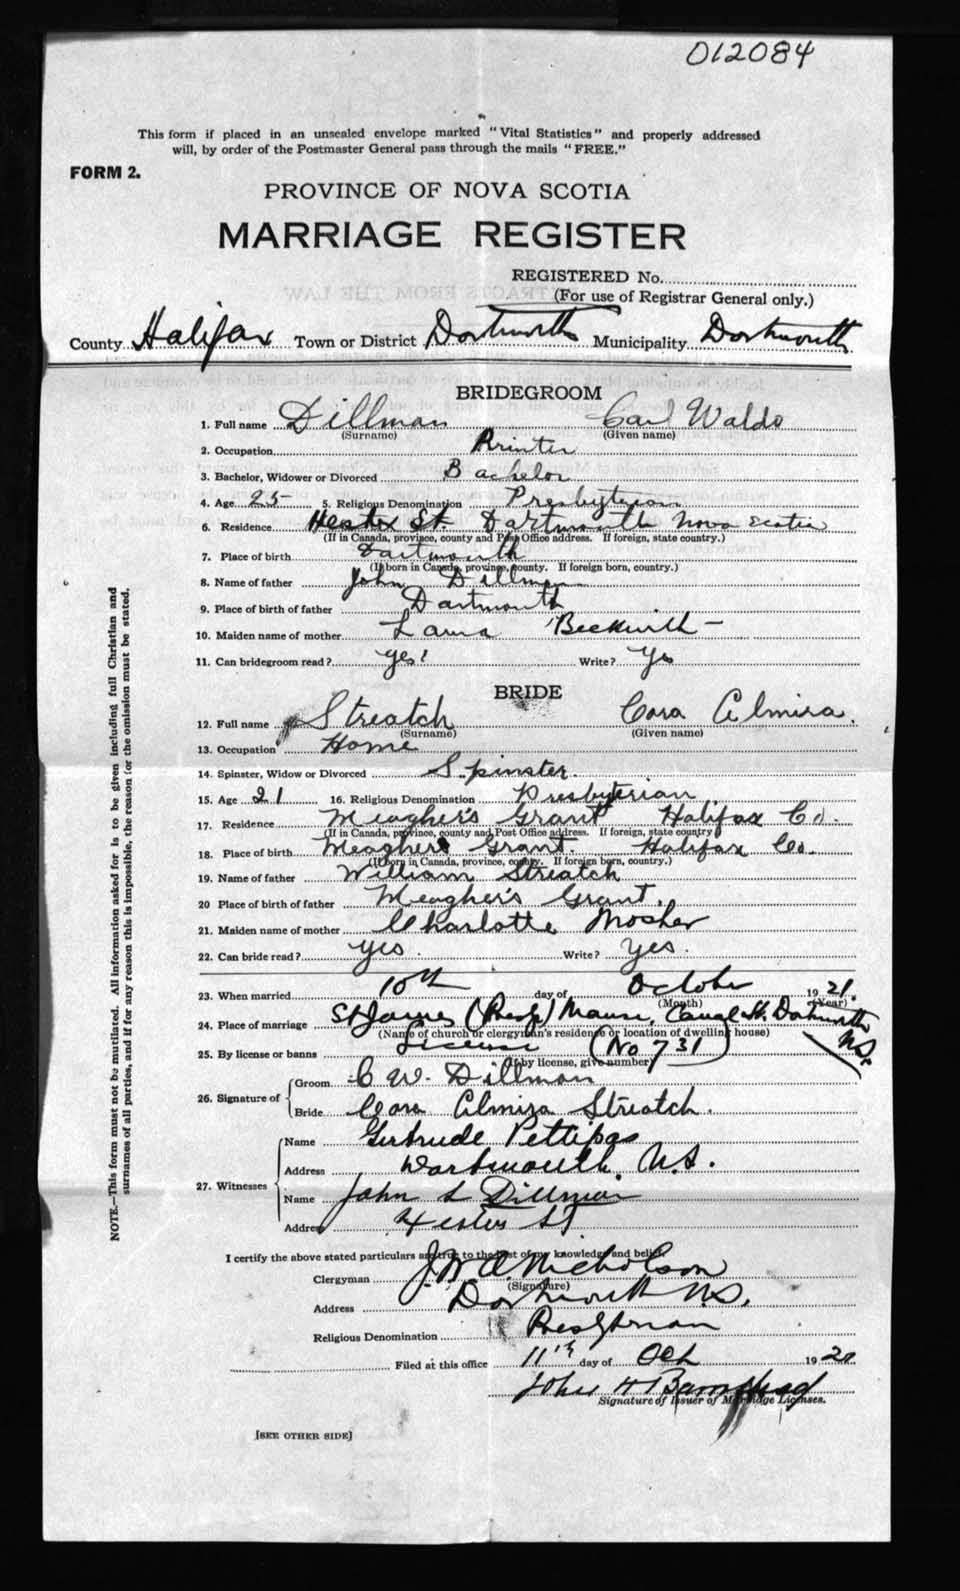 012084
This form if placed in an unsealed envelope marked "Vital Statistics" and properly addressed
will, by order of the Postmaster General pass through the mails "FREE."
FORM 2.
PROVINCE OF NOVA SCOTIA
MARRIAGE REGISTER
REGISTERED No.
(For use of Registrar General only.)
County Halifax Town or District Dartmouth Municipality Dartmouth
BRIDEGROOM
1. Full name Dillman Carl Waldo
(Surname) (Given name)
2. Occupation Printer
3. Bachelor, Widower or Divorced Bachelor
4. Age 25 5. Religious Denomination Presbyterian
6. Residence Hester St. Dartmouth Nova Scotia
(If in Canada, province, county and Post Office address. If foreign, state country.)
7. Place of birth Dartmouth
(If born in Canada, province, county. If foreign born, country.)
8. Name of father John Dillman
9. Place of birth of father Dartmouth
10. Maiden name of mother Laura Beckwith
11. Can bridegroom read? yes! Write? Yes
BRIDE
12. Full name Streatch Cora Almira.
(Surname) (Given name)
13. Occupation Home
14. Spinster, Widow or Divorced Spinster.
15. Age 21 16. Religious Denomination Presbyterian
17. Residence Meagher's Grant Halifax Co.
(If in Canada, province, county and Post Office address. If foreign, state country
18. Place of birth Meaghers Grant. Halifax Co.
(If born in Canada, province, county. If foreign born, country.)
19. Name of father William Streatch
20 Place of birth of father Meagher's Grant.
21. Maiden name of mother Charlotte Mosher
22. Can bride read? yes. Write? Yes.
23. When married 10th day of October 1921.
(Month) (Year)
24. Place of marriage St James (Presby) Manse, Canal St. Dartmouth
N.S.
(Name of church or clergyman's residence or location of dwelling house)
25. By license or banns License (No 731)
(If by license, give number)
26. Signature of Groom C W. Dillman
Bride Cora Almira Streatch.
27. Witnesses Name Gertrude Pettipas
Address Dartmouth N.S.
Name John L Dillman
Address Hester St
I certify the above stated particulars are true to the best of my knowledge and belief.
Clergyman J. W. A. Nicholson
(Signature)
Address Dartmouth N.S.
Religious Denomination Presbyterian
Filed at this office 11th day of Oct 1921
John H
Signature of Issuer of Marriage Licenses.
[SEE OTHER SIDE]
NOTE.—This form must not be mutilated. All information asked for is to be given including full Christian and
surnames of all parties, and if for any reason this is impossible, the reason for the omission must be stated.